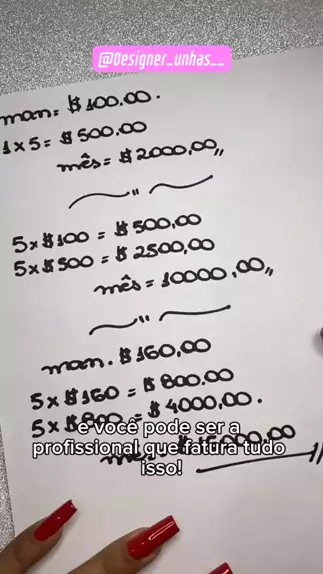 @Designer_unhas__
man= $100.00.
1x5= $500.00
mês= $2000,00,,
5x$100 = $500,00
5x$500 = $2500,00
mês= 10000,00,,
man. $160,00
5x$160 = $800.00
5x$800 = $4000,00.
e você pode ser a
profissional que fatura tudo
isso!